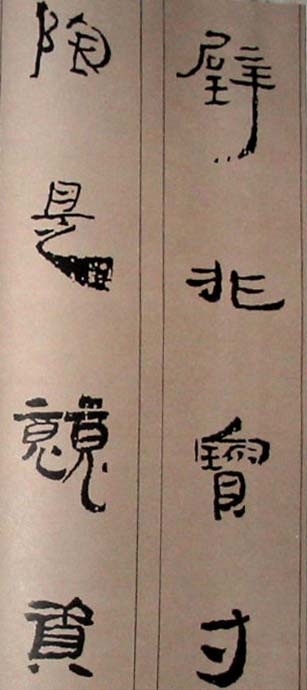 璧非寶寸
陰是競資